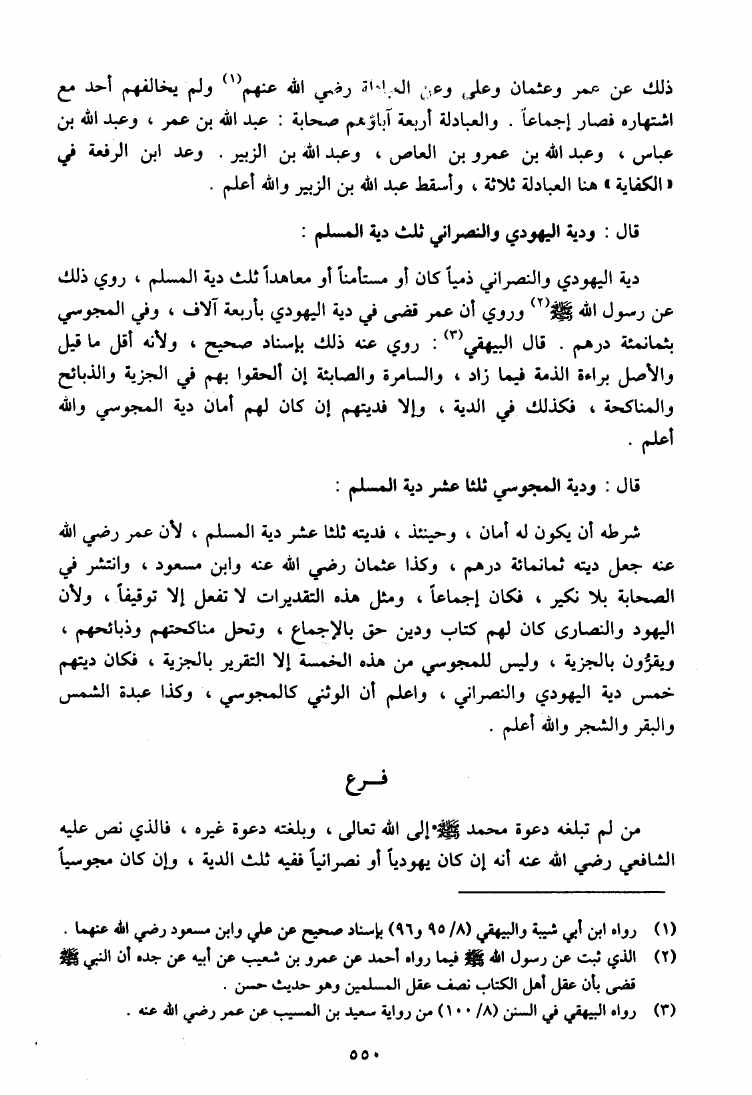 ذلك عن عمر وعثمان وعلي وعن العبادلة رضي الله عنهم(١) ولم يخالفهم أحد مع
اشتهاره فصار إجماعاً . والعبادلة أربعة آباؤهم صحابة : عبد الله بن عمر ، وعبد الله بن
عباس ، وعبد الله بن عمرو بن العاص ، وعبد الله بن الزبير . وعد ابن الرفعة في
« الكفاية » هنا العبادلة ثلاثة ، وأسقط عبد الله بن الزبير والله أعلم .
قال : ودية اليهودي والنصراني ثلث دية المسلم :
دية اليهودي والنصراني ذمياً كان أو مستأمناً أو معاهداً ثلث دية المسلم ، روي ذلك
عن رسول الله ﷺ(٢) وروي أن عمر قضى في دية اليهودي بأربعة آلاف ، وفي المجوسي
بثمانمئة درهم . قال البيهقي(٣) : روي عنه ذلك بإسناد صحيح ، ولأنه أقل ما قيل
والأصل براءة الذمة فيما زاد ، والسامرة والصابئة إن ألحقوا بهم في الجزية والذبائح
والمناكحة ، فكذلك في الدية ، وإلا فديتهم إن كان لهم أمان دية المجوسي والله
أعلم .
قال : ودية المجوسي ثلثا عشر دية المسلم :
شرطه أن يكون له أمان ، وحينئذ ، فديته ثلثا عشر دية المسلم ، لأن عمر رضي الله
عنه جعل ديته ثمانمائة درهم ، وكذا عثمان رضي الله عنه وابن مسعود ، وانتشر في
الصحابة بلا نكير ، فكان إجماعاً ، ومثل هذه التقديرات لا تفعل إلا توقيفاً ، ولأن
اليهود والنصارى كان لهم كتاب ودين حق بالإجماع ، وتحل مناكحتهم وذبائحهم ،
ويقرُّون بالجزية ، وليس للمجوسي من هذه الخمسة إلا التقرير بالجزية ، فكان ديتهم
خمس دية اليهودي والنصراني ، واعلم أن الوثني كالمجوسي ، وكذا عبدة الشمس
والبقر والشجر والله أعلم .
فـرع
من لم تبلغه دعوة محمد ﷺ إلى الله تعالى ، وبلغته دعوة غيره ، فالذي نص عليه
الشافعي رضي الله عنه أنه إن كان يهودياً أو نصرانياً ففيه ثلث الدية ، وإن كان مجوسياً
(١) رواه ابن أبي شيبة والبيهقي (٨/ ٩٥ و٩٦) بإسناد صحيح عن علي وابن مسعود رضي الله عنهما .
(٢) الذي ثبت عن رسول الله ﷺ فيما رواه أحمد عن عمرو بن شعيب عن أبيه عن جده أن النبي ﷺ
قضى بأن عقل أهل الكتاب نصف عقل المسلمين وهو حديث حسن .
(٣) رواه البيهقي في السنن (٨/ ١٠٠) من رواية سعيد بن المسيب عن عمر رضي الله عنه .
٥٥٠